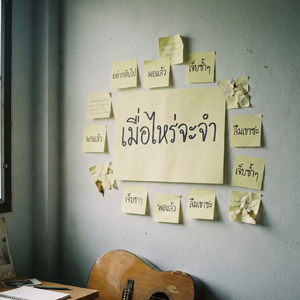 อย่ากลับไป
พอแล้ว
เจ็บซ้ำๆ
เมื่อไหร่จะจำ
ลืมเขาซะ
พอแล้ว
เจ็บซ้ำๆ
พอแล้ว
ลืมเขาซะ